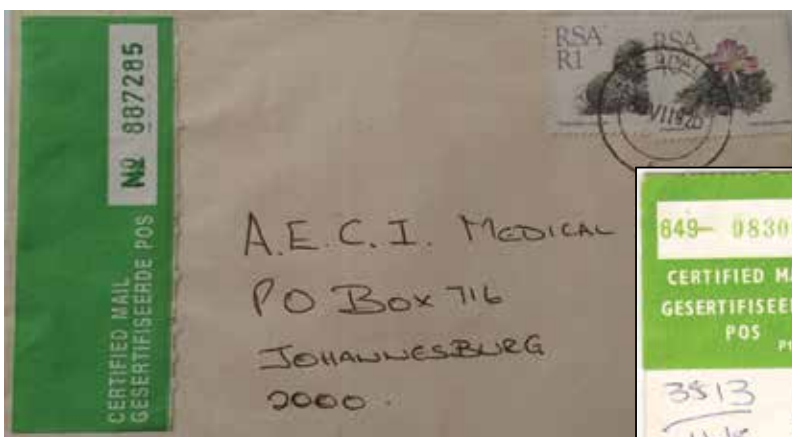 CERTIFIED MAIL
GESERTIFISEERDE POS
No 887285
RSA
R1
RSA
A.E.C.I. MEDICAL
PO BOX 716
JOHANNESBURG
2000.
649- 0830
CERTIFIED MA
GESERTIFISEE
POS
3513